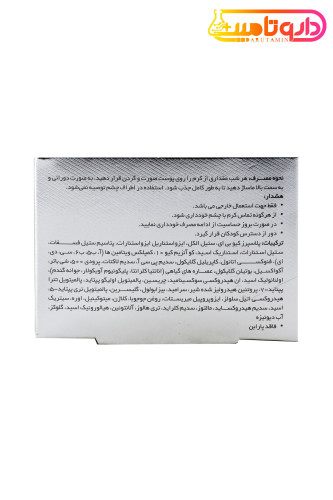 داروتامین
DARUTAMIN
نحوه مصرف: هر شب مقداری از کرم را روی پوست صورت و گردن قرار دهید. به صورت دورانی و
به سمت بالا ماساژ دهید تا به طور کامل جذب شود. استفاده در اطراف چشم توصیه نمی‌شود.
هشدار:
• فقط جهت استعمال خارجی می باشد.
• از هرگونه تماس کرم با چشم خودداری شود.
• در صورت بروز حساسیت از ادامه مصرف خودداری نمایید.
• دور از دسترس کودکان قرار گیرد.
ترکیبات: پلاسپرز کیو بی ای، ستیل الکل، ایزواستئاریل ایزواستئارات، پتاسیم ستیل فسفات،
ستیل استئارات، استئاریک اسید، کو آنزیم کیو ۱۰، کمپلکس ویتامین ها (آ، ب۵، ب۶، سی، دی،
ای)، فنوکسی اتانول، کاپریلیل گلایکول، سدیم پی سی آ، سدیم لاکتات، پرودی ۵۰۰، شی باتر،
آکواکسیل، بوتیلن گلایکول، عصاره های گیاهی (
اولئانولیک اسید، ان هیدروکسی سوکسینیمید، چریسین، پالمیتویل اولیگو پپتاید، پالمیتویل تترا
پپتاید-۷، پروتئین هیدرولیز شده شیر، سرامید، بیزابولول، گلیسرین، پالمیتویل تری پپتاید-۵،
هیدروکسی اتیل سلولز، ایزوپروپیل میریستات، روغن جوجوبا، کلاژن، میتوکینیل، اوره، سیتریک
اسید، سدیم هیدروکساید، مالتوز، سدیم کلراید، تری هالوز، آلانتوئین، هیالورونیک اسید، گلوکز،
آب دیونیزه
• فاقد پارابن